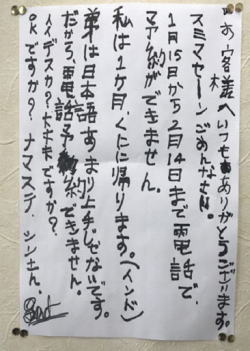 お客様へいつもありがとうございます。
スミマセーンごめんなさい。
1月15日から2月14日まで電話で、
予約ができません。
私は1カ月、くにに帰ります。(インド)
弟は日本語あまり上手ぢゃないです。
だから、電話予約できません。
イイデスカ?大丈夫ですか?
OKですか? ナマステ、シンさん。